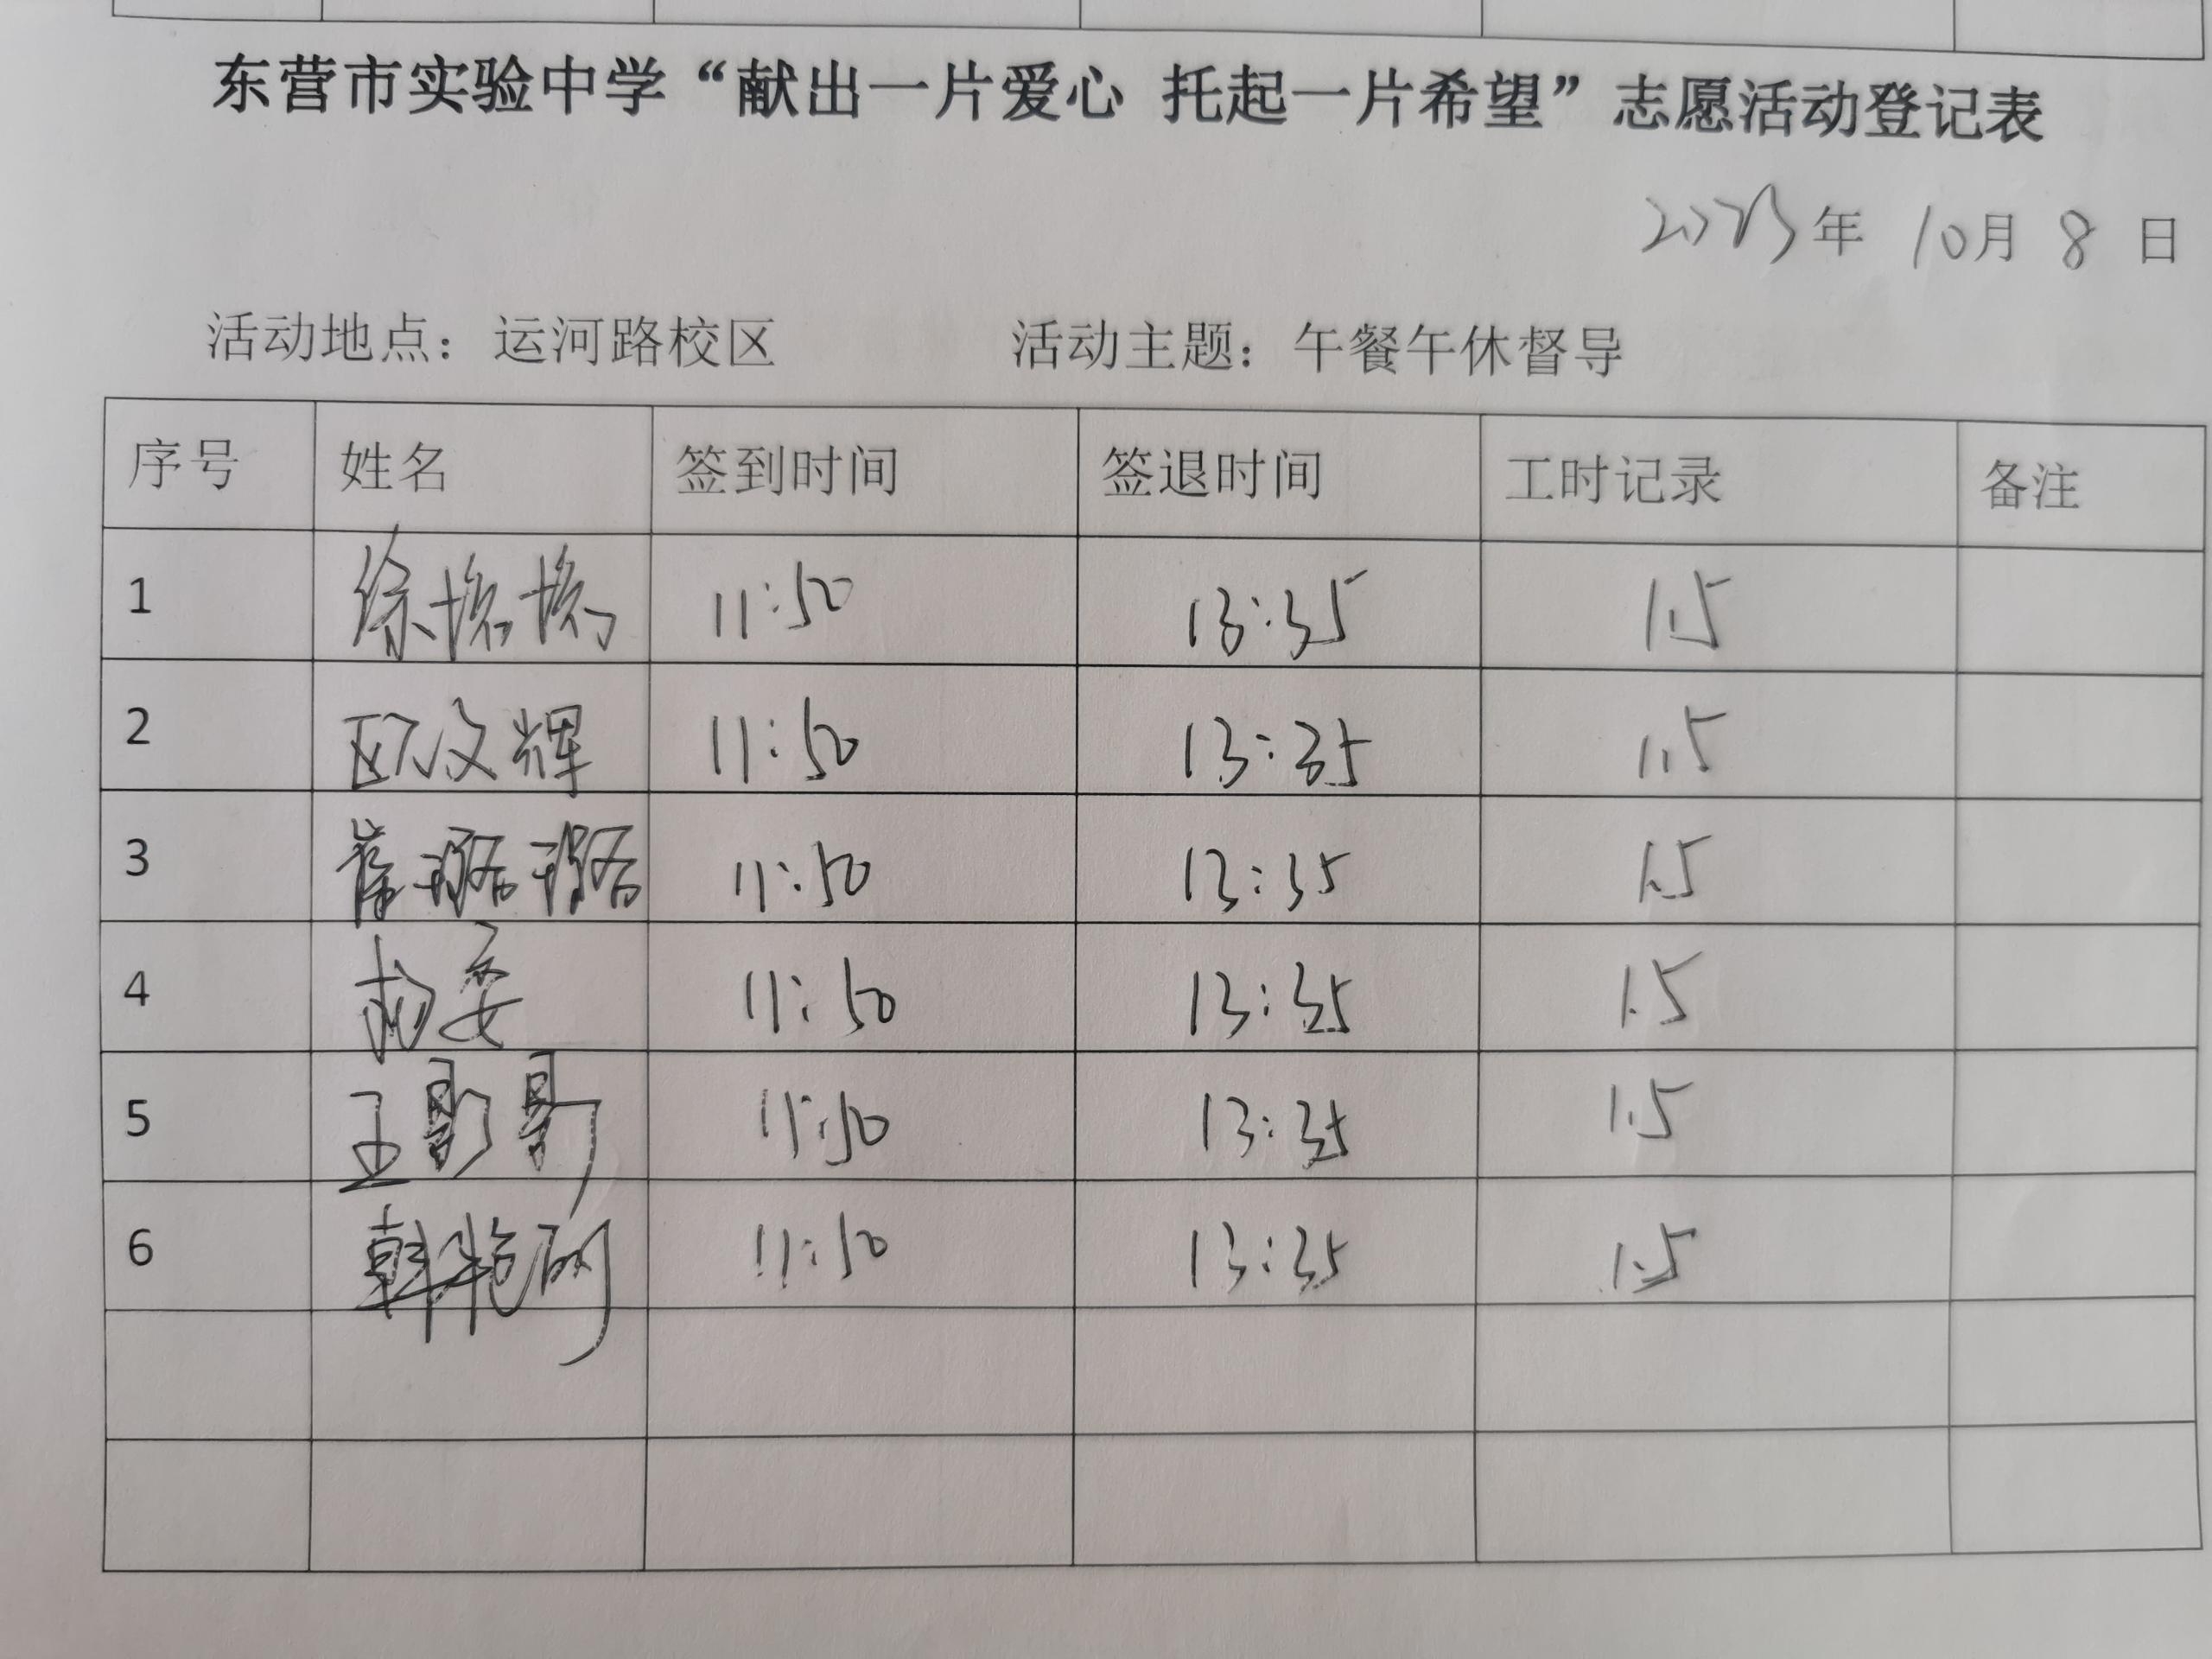 东营市实验中学“献出一片爱心 托起一片希望”志愿活动登记表
2023年 10月 8 日
活动地点：运河路校区 活动主题：午餐午休督导
序号 姓名 签到时间 签退时间 工时记录 备注
1 徐 11:50 13:35 1.5
2 欧文辉 11:50 13:35 1.5
3 崔璐璐 11:50 13:35 1.5
4 11:50 13:35 1.5
5 王 11:50 13:35 1.5
6 韩艳丽 11:50 13:35 1.5